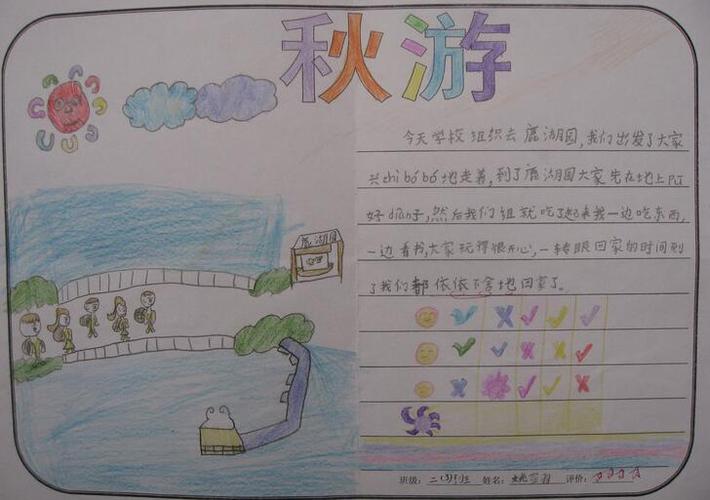 秋游
今天学校组织去鹿湖园,我们出发了大家
兴chì bó bó地走着,到了鹿湖园大家先在地上pū
好diàn子,然后我们组就吃了起来我一边吃东西,
一边看书,大家玩得很开心,一转眼回家的时间到
了我们都依依不舍地回家了。
鹿湖园
班级: 二(3)班 姓名: 评价: